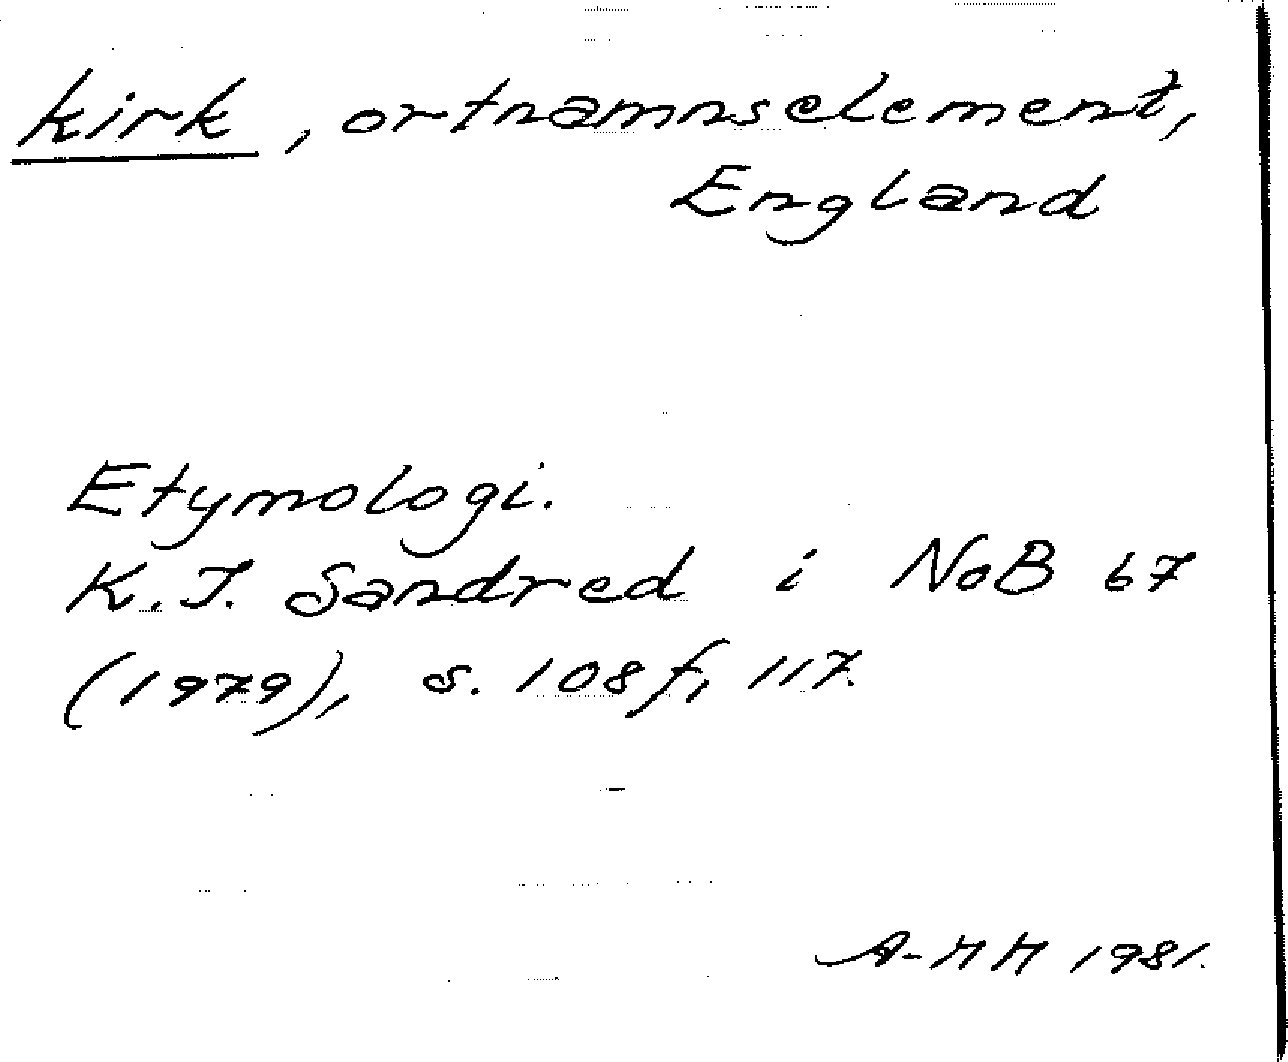 kirk, ortnamnselement,
England
Etymologi.
K. I. Sandred i NoB 67
(1979), s. 108 f, 117.
A-HH 1981.